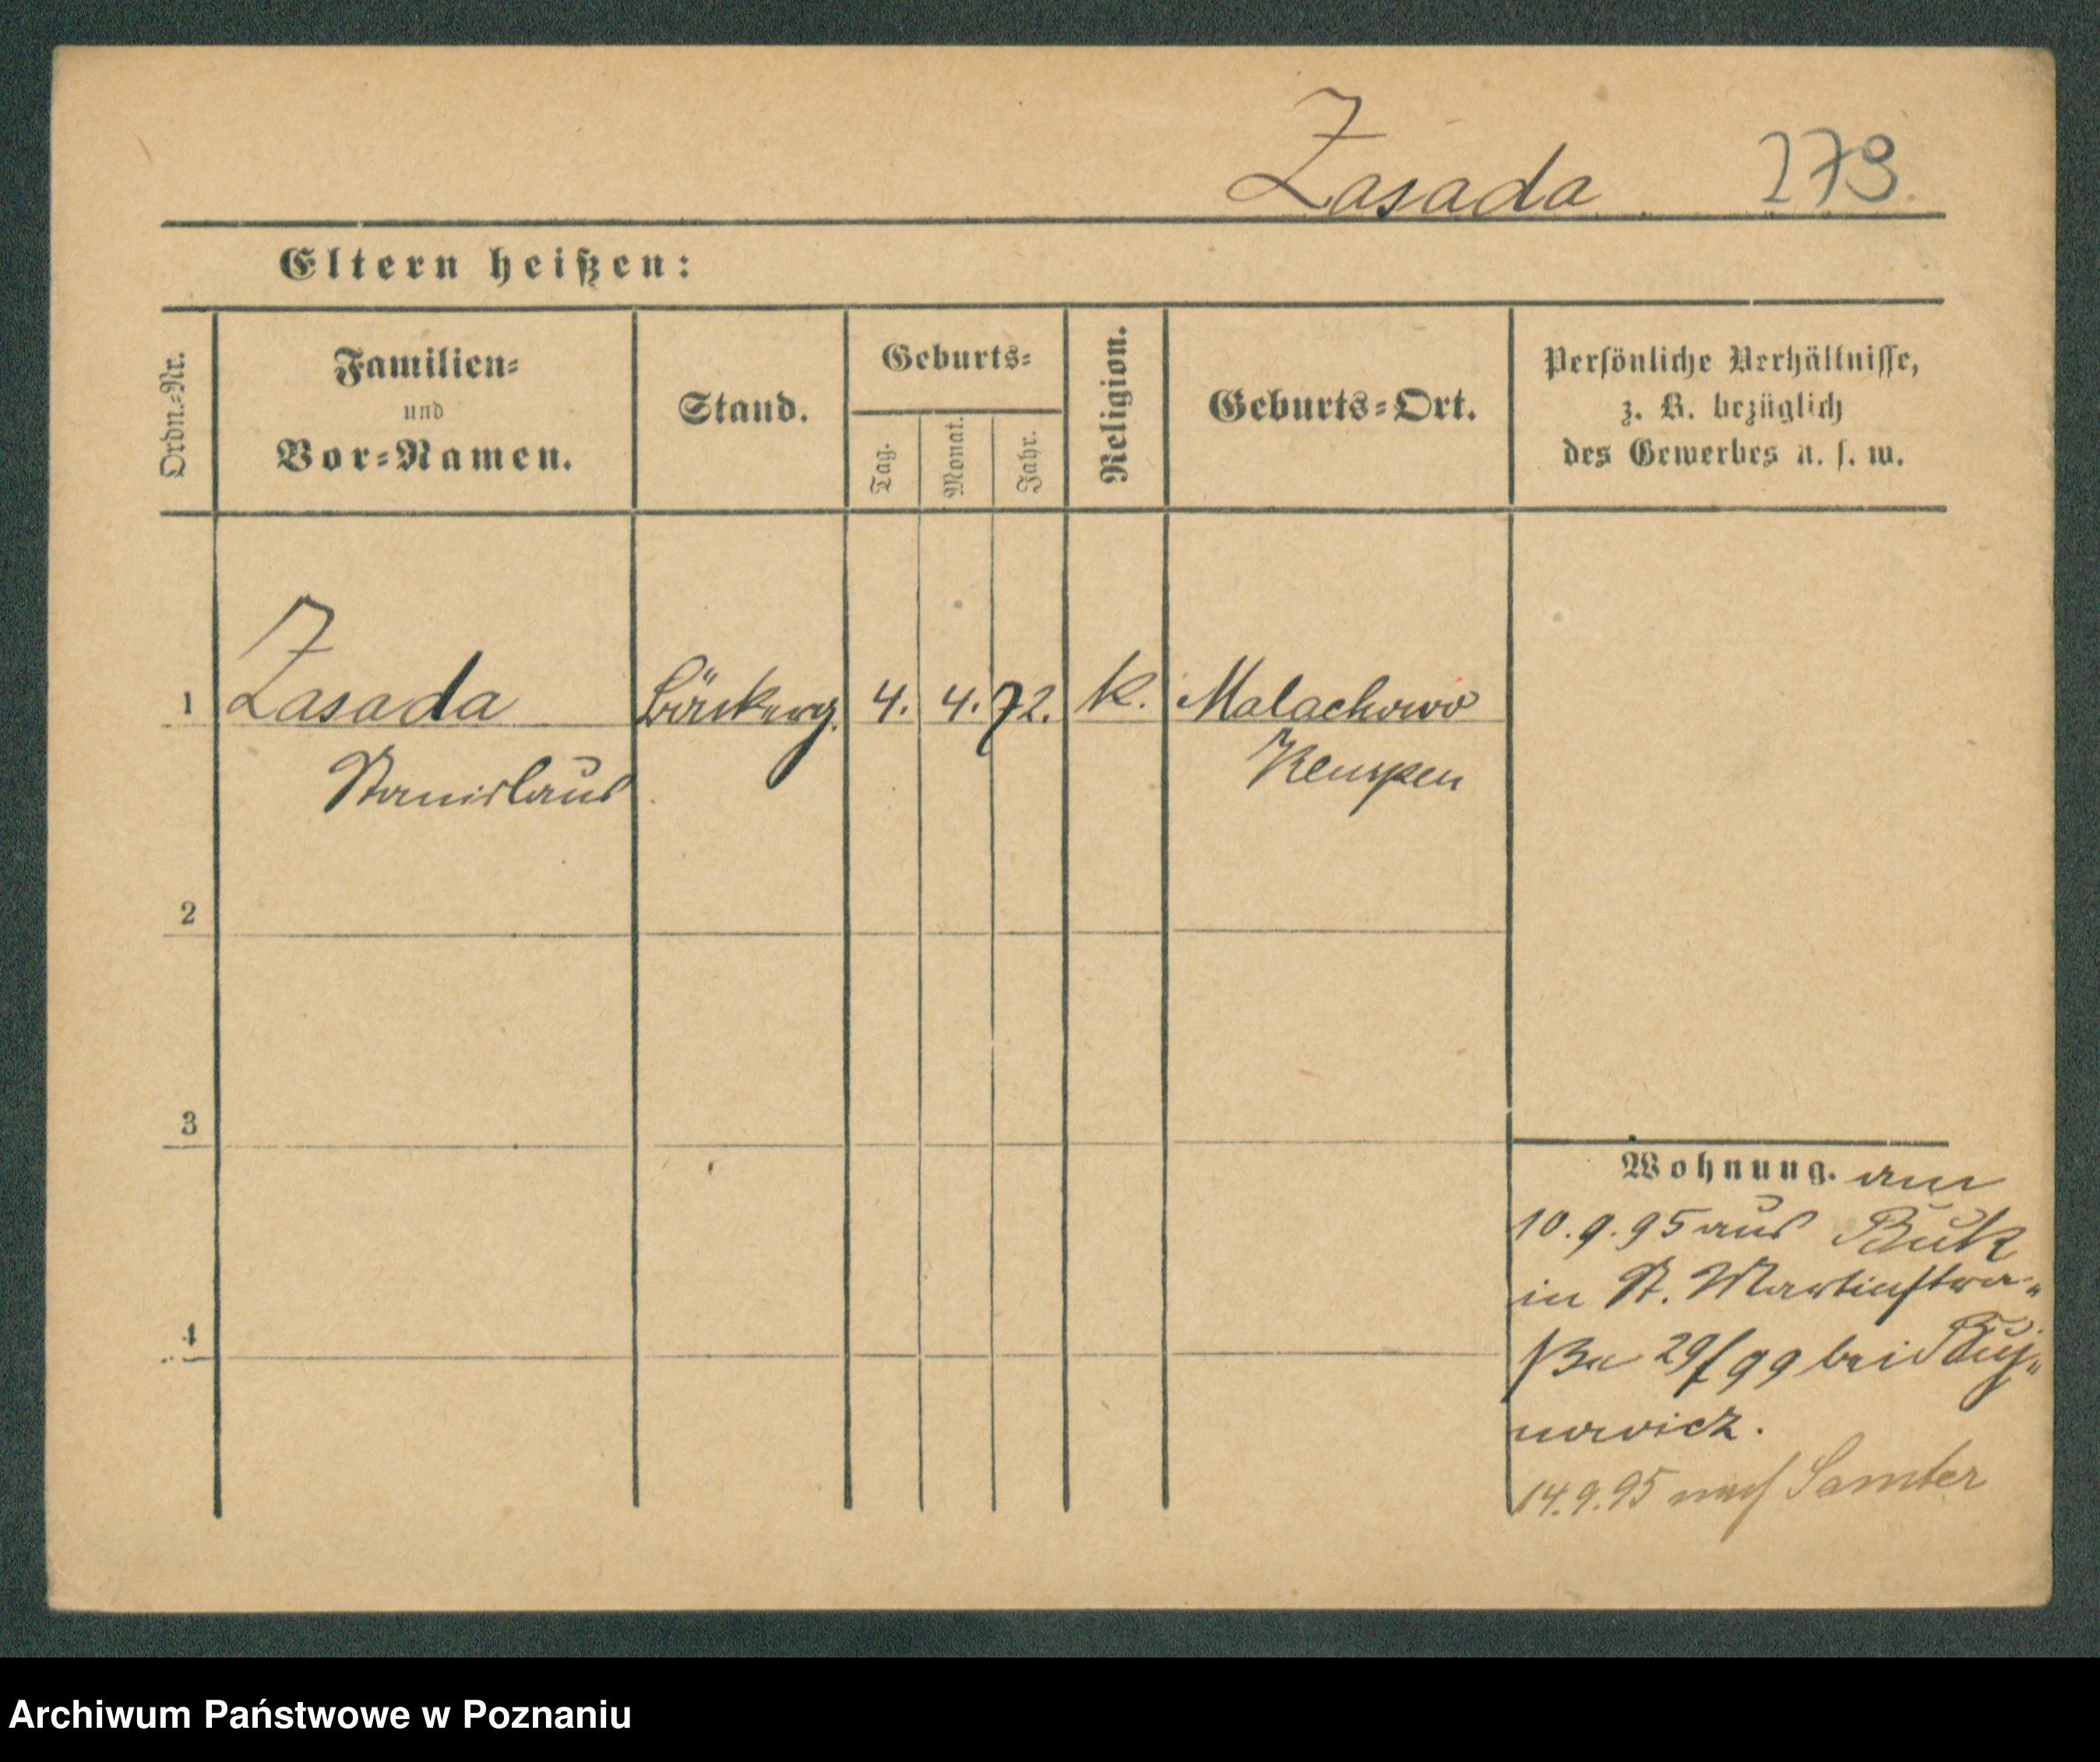 Zasada 273
Eltern heißen:
Ordn.-Nr.
Familien-
und
Vor-Namen.
Stand.
Geburts-
Tag.
Monat.
Jahr.
Religion.
Geburts-Ort.
Persönliche Verhältnisse,
z. B. bezüglich
des Gewerbes u. s. w.
1 Zasada 4. 4. 72. k. Malachowo
Stanislaus Kempen
2
3
4
Wohnung. am
10.9.95 aus Buk
in St. Martinstra-
ße 29/99 bei
14.9.95 nach Samter
Archiwum Państwowe w Poznaniu